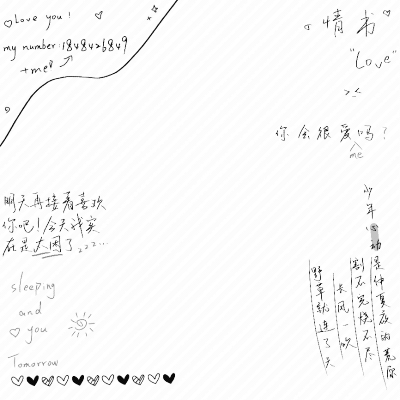 Love you!
my number:1848426849
+me?
情书
"Love"
><
你会很爱吗?
me
明天再接着喜欢
你吧!今天我实
在是太困了zzz...
sleeping
and
you
Tomorrow
少年心动是仲夏夜的荒原
割不完烧不尽
长风一吹
野草就连了天